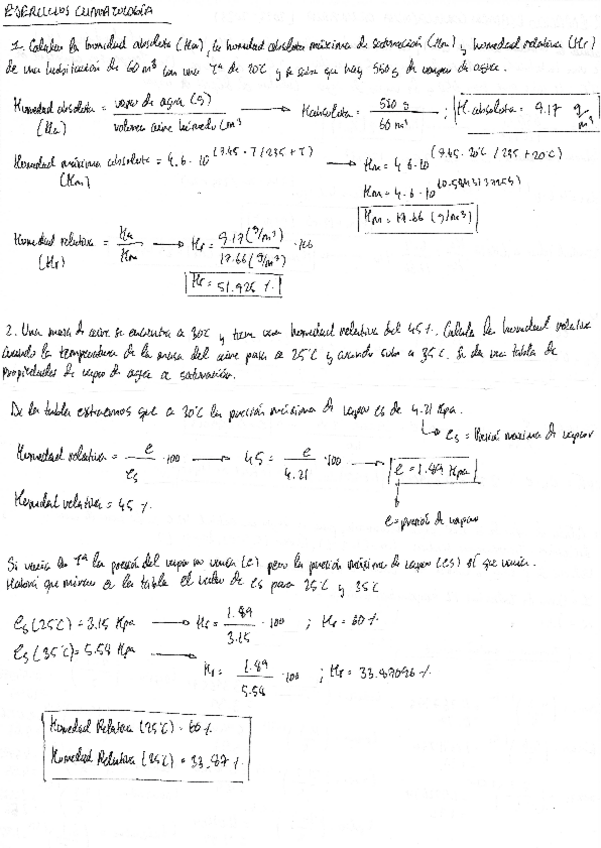 EJERCICIOS CLIMATOLOGÍA
1. Calcular la humedad absoluta (Ha), la humedad absoluta máxima de saturación (Hm) y humedad relativa (Hr)
de una habitación de 60 m³ con una Tª de 20°C y se sabe que hay 550 g de vapor de agua.
Humedad absoluta = vapor de agua (g) / volumen aire húmedo (m³ → H absoluta = 550 g / 60 m³ ; H. absoluta = 9.17 g/m³
(Ha)
Humedad máxima absoluta = 4.6 · 10^(7.45 · T / 235 + T) → Hm = 4.6 · 10^(7.45 · 20°C / 235 + 20°C)
(Hm)
Hm = 4.6 · 10
Hm = 17.66 (g/m³)
Humedad relativa = Ha / Hm → Hr = 9.17 (g/m³) / 17.66 (g/m³) · 100
(Hr)
Hr = 51.926 %
2. Una masa de aire se encuentra a 30°C y tiene una humedad relativa del 45%. Calcula la humedad relativa
cuando la temperatura de la masa del aire pasa a 25°C y cuando sube a 35°C. Se da una tabla de
propiedades de vapor de agua a saturación.
De la tabla extraemos que a 30°C la presión máxima de vapor es de 4.21 Kpa.
es = Presión máxima de vapor
Humedad relativa = e / es · 100 → 45 = e / 4.21 · 100 → e = 1.89 Kpa
Humedad relativa = 45 %
e = presión de vapor
Si varía la Tª la presión del vapor no varía (e) pero la presión máxima de vapor (es) sí que varía.
Habrá que mirar en la tabla el valor de es para 25°C y 35°C
es (25°C) = 3.15 Kpa → Hr = 1.89 / 3.15 · 100 ; Hr = 60 %
es (35°C) = 5.58 Kpa → Hr = 1.89 / 5.58 · 100 ; Hr = 33.87096 %
Humedad Relativa (25°C) = 60 %
Humedad Relativa (25°C) = 33.87 %